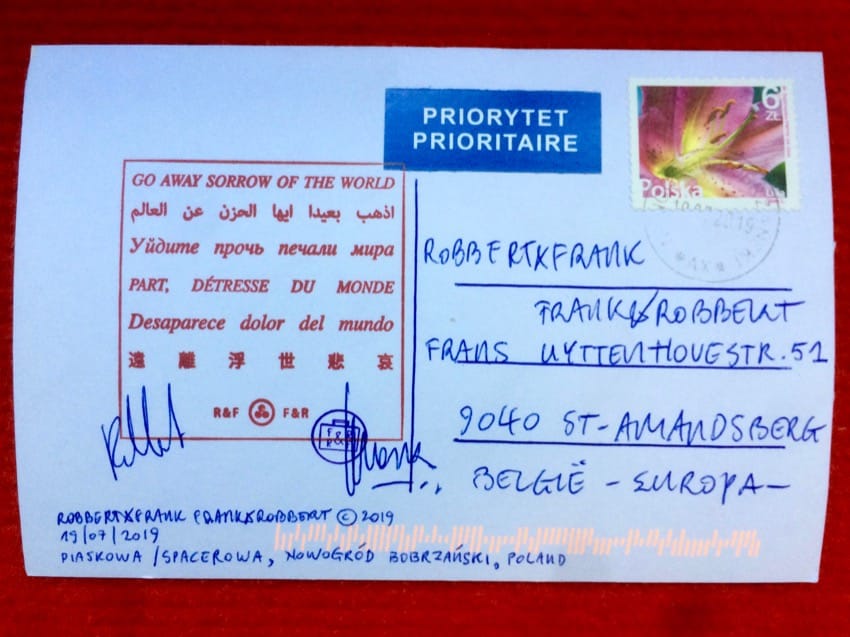 PRIORYTET
PRIORITAIRE
6
ZŁ
Polska
GO AWAY SORROW OF THE WORLD
اذهب بعيدا ايها الحزن عن العالم
Уйдите прочь печали мира
PART, DÉTRESSE DU MONDE
Desaparece dolor del mundo
遠 離 浮 世 悲 哀
R&F F&R
ROBBERT&FRANK
FRANK&ROBBERT
FRANS UYTTENHOVESTR. 51
9040 ST-AMANDSBERG
BELGIË - EUROPA -
ROBBERT&FRANK FRANK&ROBBERT © 2019
19/07/2019
PIASKOWA / SPACEROWA, NOWOGRÓD BOBRZAŃSKI, POLAND